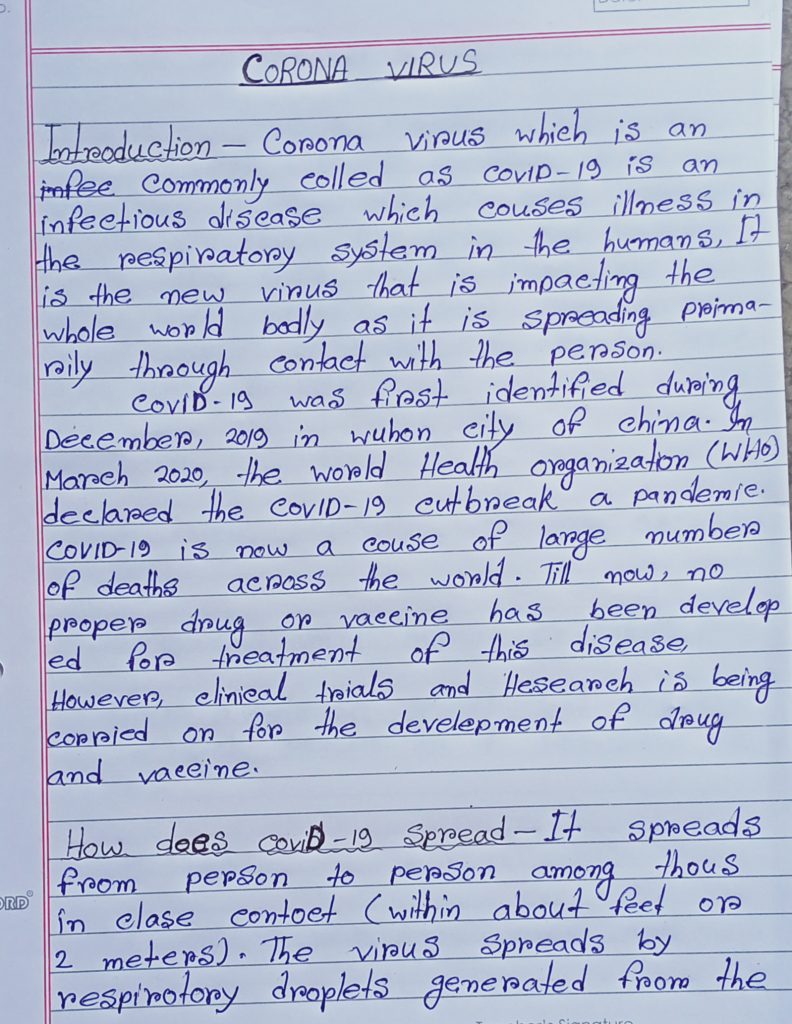 CORONA VIRUS
Introduction - Corona virus which is an
infee commonly colled as COVID-19 is an
infectious disease which couses illness in
the respiratory system in the humans, It
is the new virus that is impacting the
whole world badly as it is spreading prima-
rily through contact with the person.
COVID-19 was first identified during
December, 2019 in wuhon city of china. In
March 2020, the world Health organization (WHO)
declared the COVID-19 cutbreak a pandemic.
COVID-19 is now a couse of large number
of deaths across the world. Till now, no
proper drug or vaccine has been develop
ed for treatment of this disease,
However, clinical trials and Research is being
corried on for the develepment of drug
and vaccine.
How does COVID-19 Spread - It spreads
from person to person among thous
in clase contoct (within about feet or
2 meters). The virus spreads by
respirotory droplets generated from the
ORD®